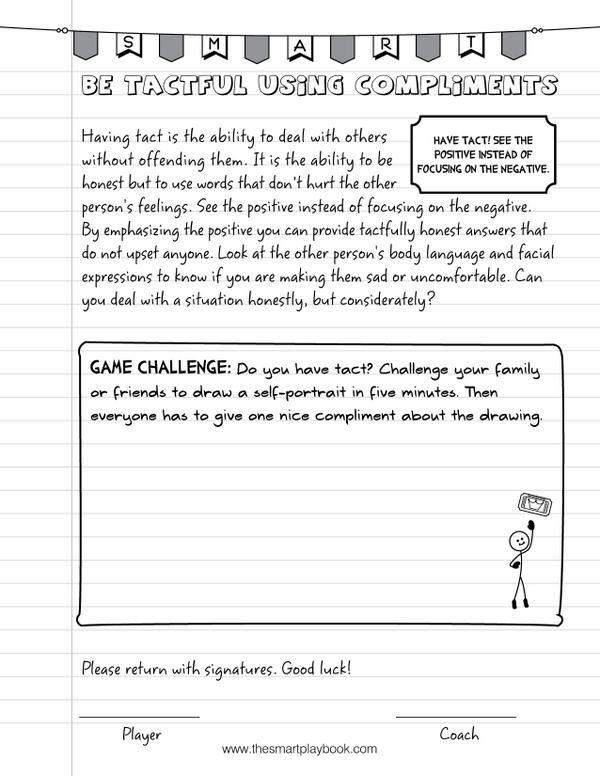 S M A R T
BE TACTFUL USiNG COMPLiMENTS
Having tact is the ability to deal with others
without offending them. It is the ability to be
honest but to use words that don't hurt the other
person's feelings. See the positive instead of focusing on the negative.
By emphasizing the positive you can provide tactfully honest answers that
do not upset anyone. Look at the other person's body language and facial
expressions to know if you are making them sad or uncomfortable. Can
you deal with a situation honestly, but considerately?
HAVE TACT! SEE THE
POSITIVE INSTEAD OF
FOCUSING ON THE NEGATIVE.
GAME CHALLENGE: Do you have tact? Challenge your family
or friends to draw a self-portrait in five minutes. Then
everyone has to give one nice compliment about the drawing.
Please return with signatures. Good luck!
Player
Coach
www.thesmartplaybook.com